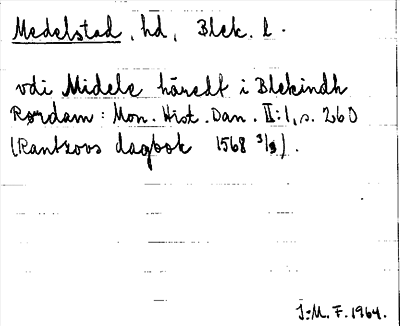 Medelstad, hd, Blek. l.
vdi Midels häredt i Blekindh
Rørdam: Mon. Hist. Dan. II:1, s. 260
(Rantzovs dagbok 1568 3/9).
J:M.F. 1964.